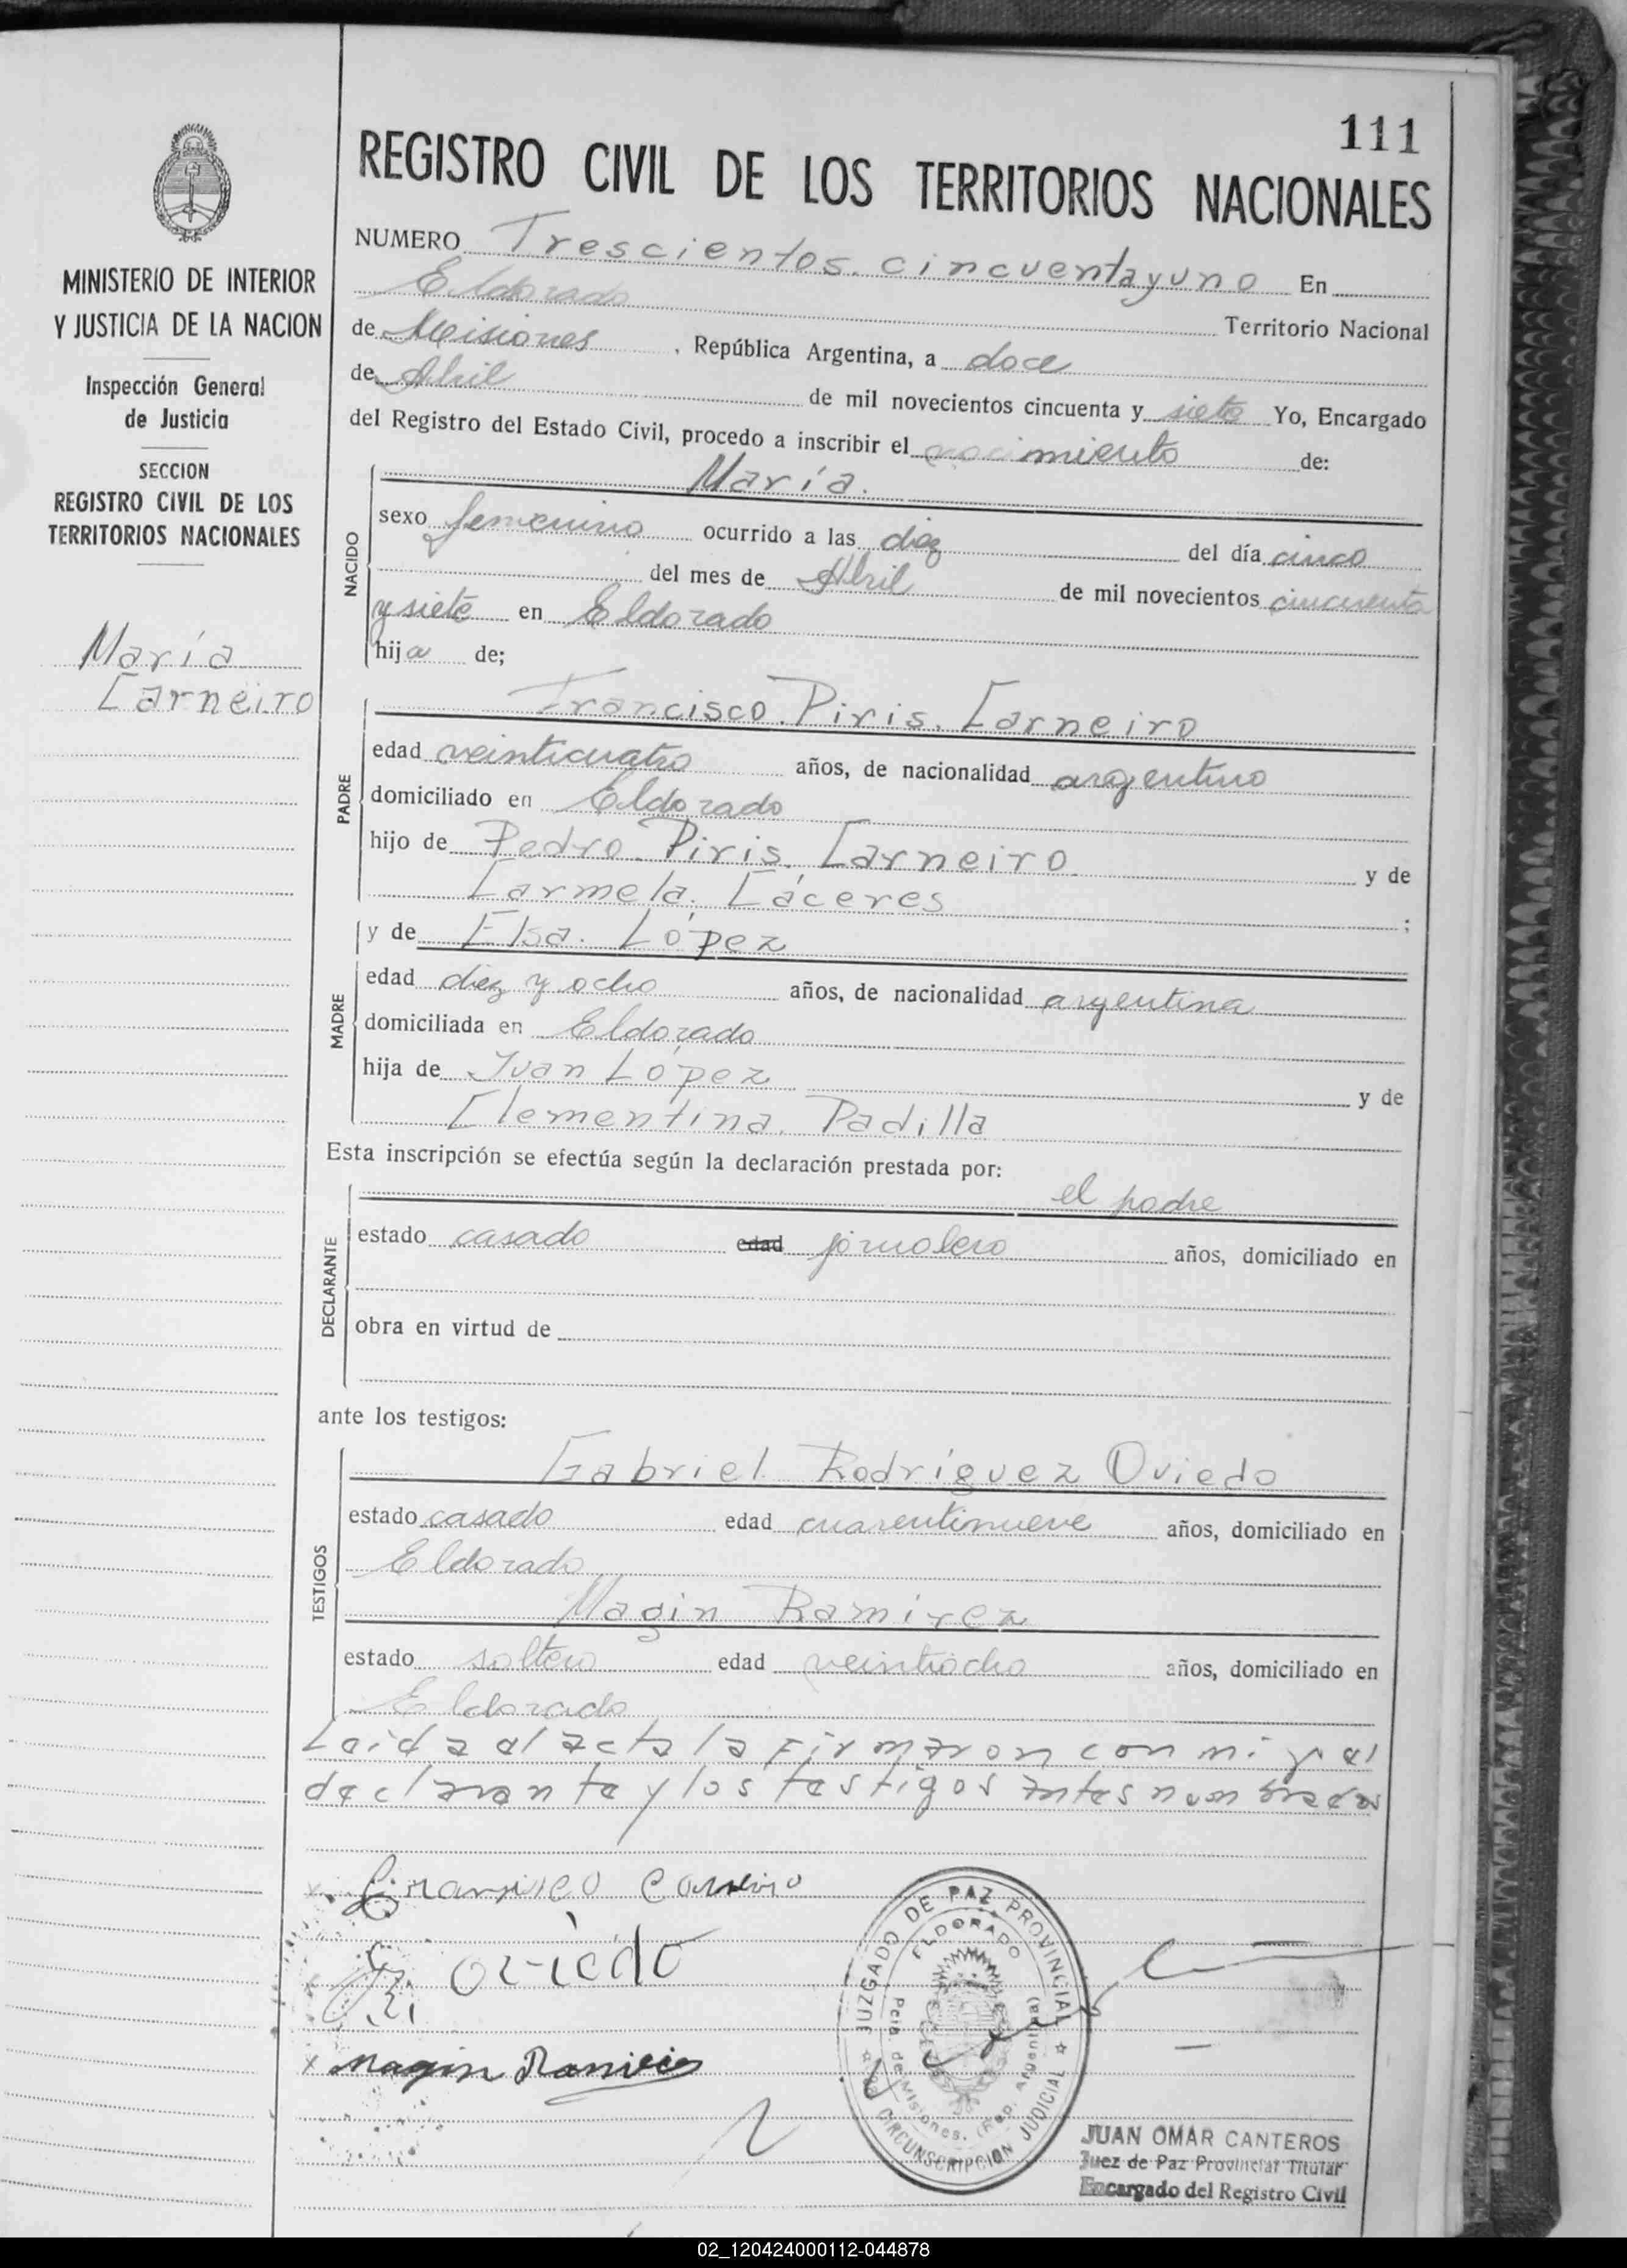 111
REGISTRO CIVIL DE LOS TERRITORIOS NACIONALES
MINISTERIO DE INTERIOR
Y JUSTICIA DE LA NACION
Inspección General
de Justicia
SECCION
REGISTRO CIVIL DE LOS
TERRITORIOS NACIONALES
María
Carneiro
NUMERO Trescientos cincuenta y uno En
Eldorado Territorio Nacional
de Misiones, República Argentina, a doce
de Abril de mil novecientos cincuenta y siete Yo, Encargado
del Registro del Estado Civil, procedo a inscribir el nacimiento de:
María.
NACIDO
sexo femenino ocurrido a las diez del día cinco
del mes de Abril de mil novecientos cincuenta
y siete en Eldorado
hija de;
Francisco Piris Carneiro
PADRE
edad veinticuatro años, de nacionalidad argentino
domiciliado en Eldorado
hijo de Pedro Piris Carneiro y de
Carmela Cáceres ;
y de Elsa López
MADRE
edad diez y ocho años, de nacionalidad argentina
domiciliada en Eldorado
hija de Juan López y de
Clementina Padilla
Esta inscripción se efectúa según la declaración prestada por:
el padre
DECLARANTE
estado casado edad jornalero años, domiciliado en
obra en virtud de
ante los testigos:
Gabriel Rodríguez Oviedo
TESTIGOS
estado casado edad cuarentinueve años, domiciliado en
Eldorado
Magin Ramirez
estado soltero edad veintiocho años, domiciliado en
Eldorado
Leida el acta la firmaron conmigo el
declarante y los testigos antes nombrados
Francisco Carneiro
Oviedo
Magin Ramirez
JUZGADO DE PAZ PROVINCIAL
ELDORADO
Pcia. de Misiones. (Rep. Argentina)
CIRCUNSCRIPCION JUDICIAL
JUAN OMAR CANTEROS
Juez de Paz Provincial Titular
Encargado del Registro Civil
02_120424000112-044878